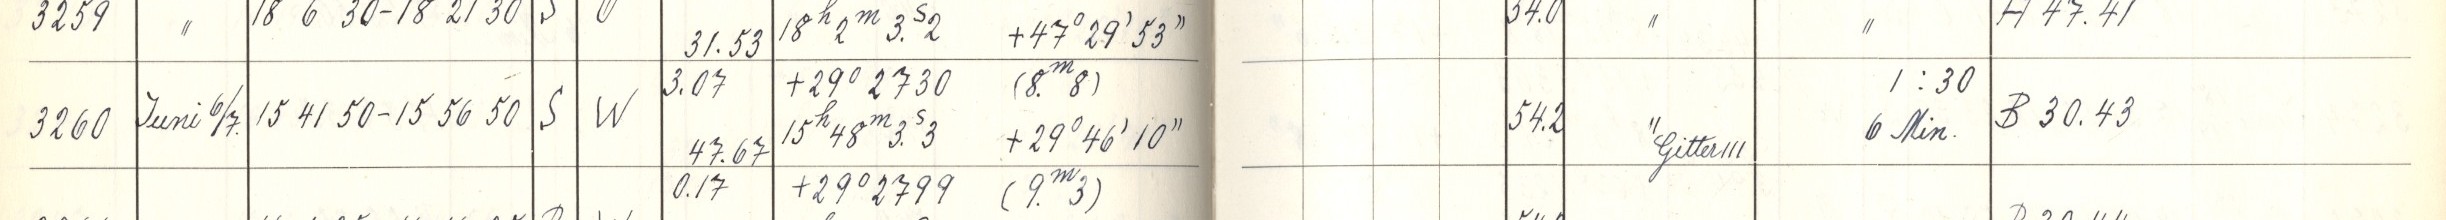 3259 " 18 6 30-18 21 30 S O 31.53 18h 2m 3.s2 +47° 29' 53" 54.0 " " H 47.41
3.07 +29° 2730 (8.m8) 1 : 30
3260 Juni 6/7. 15 41 50-15 56 50 S W 54.2 " 6 Min. B 30.43
47.67 15h 48m 3.s3 +29° 46' 10" Gitter III
0.17 +29° 2799 (9.m3)